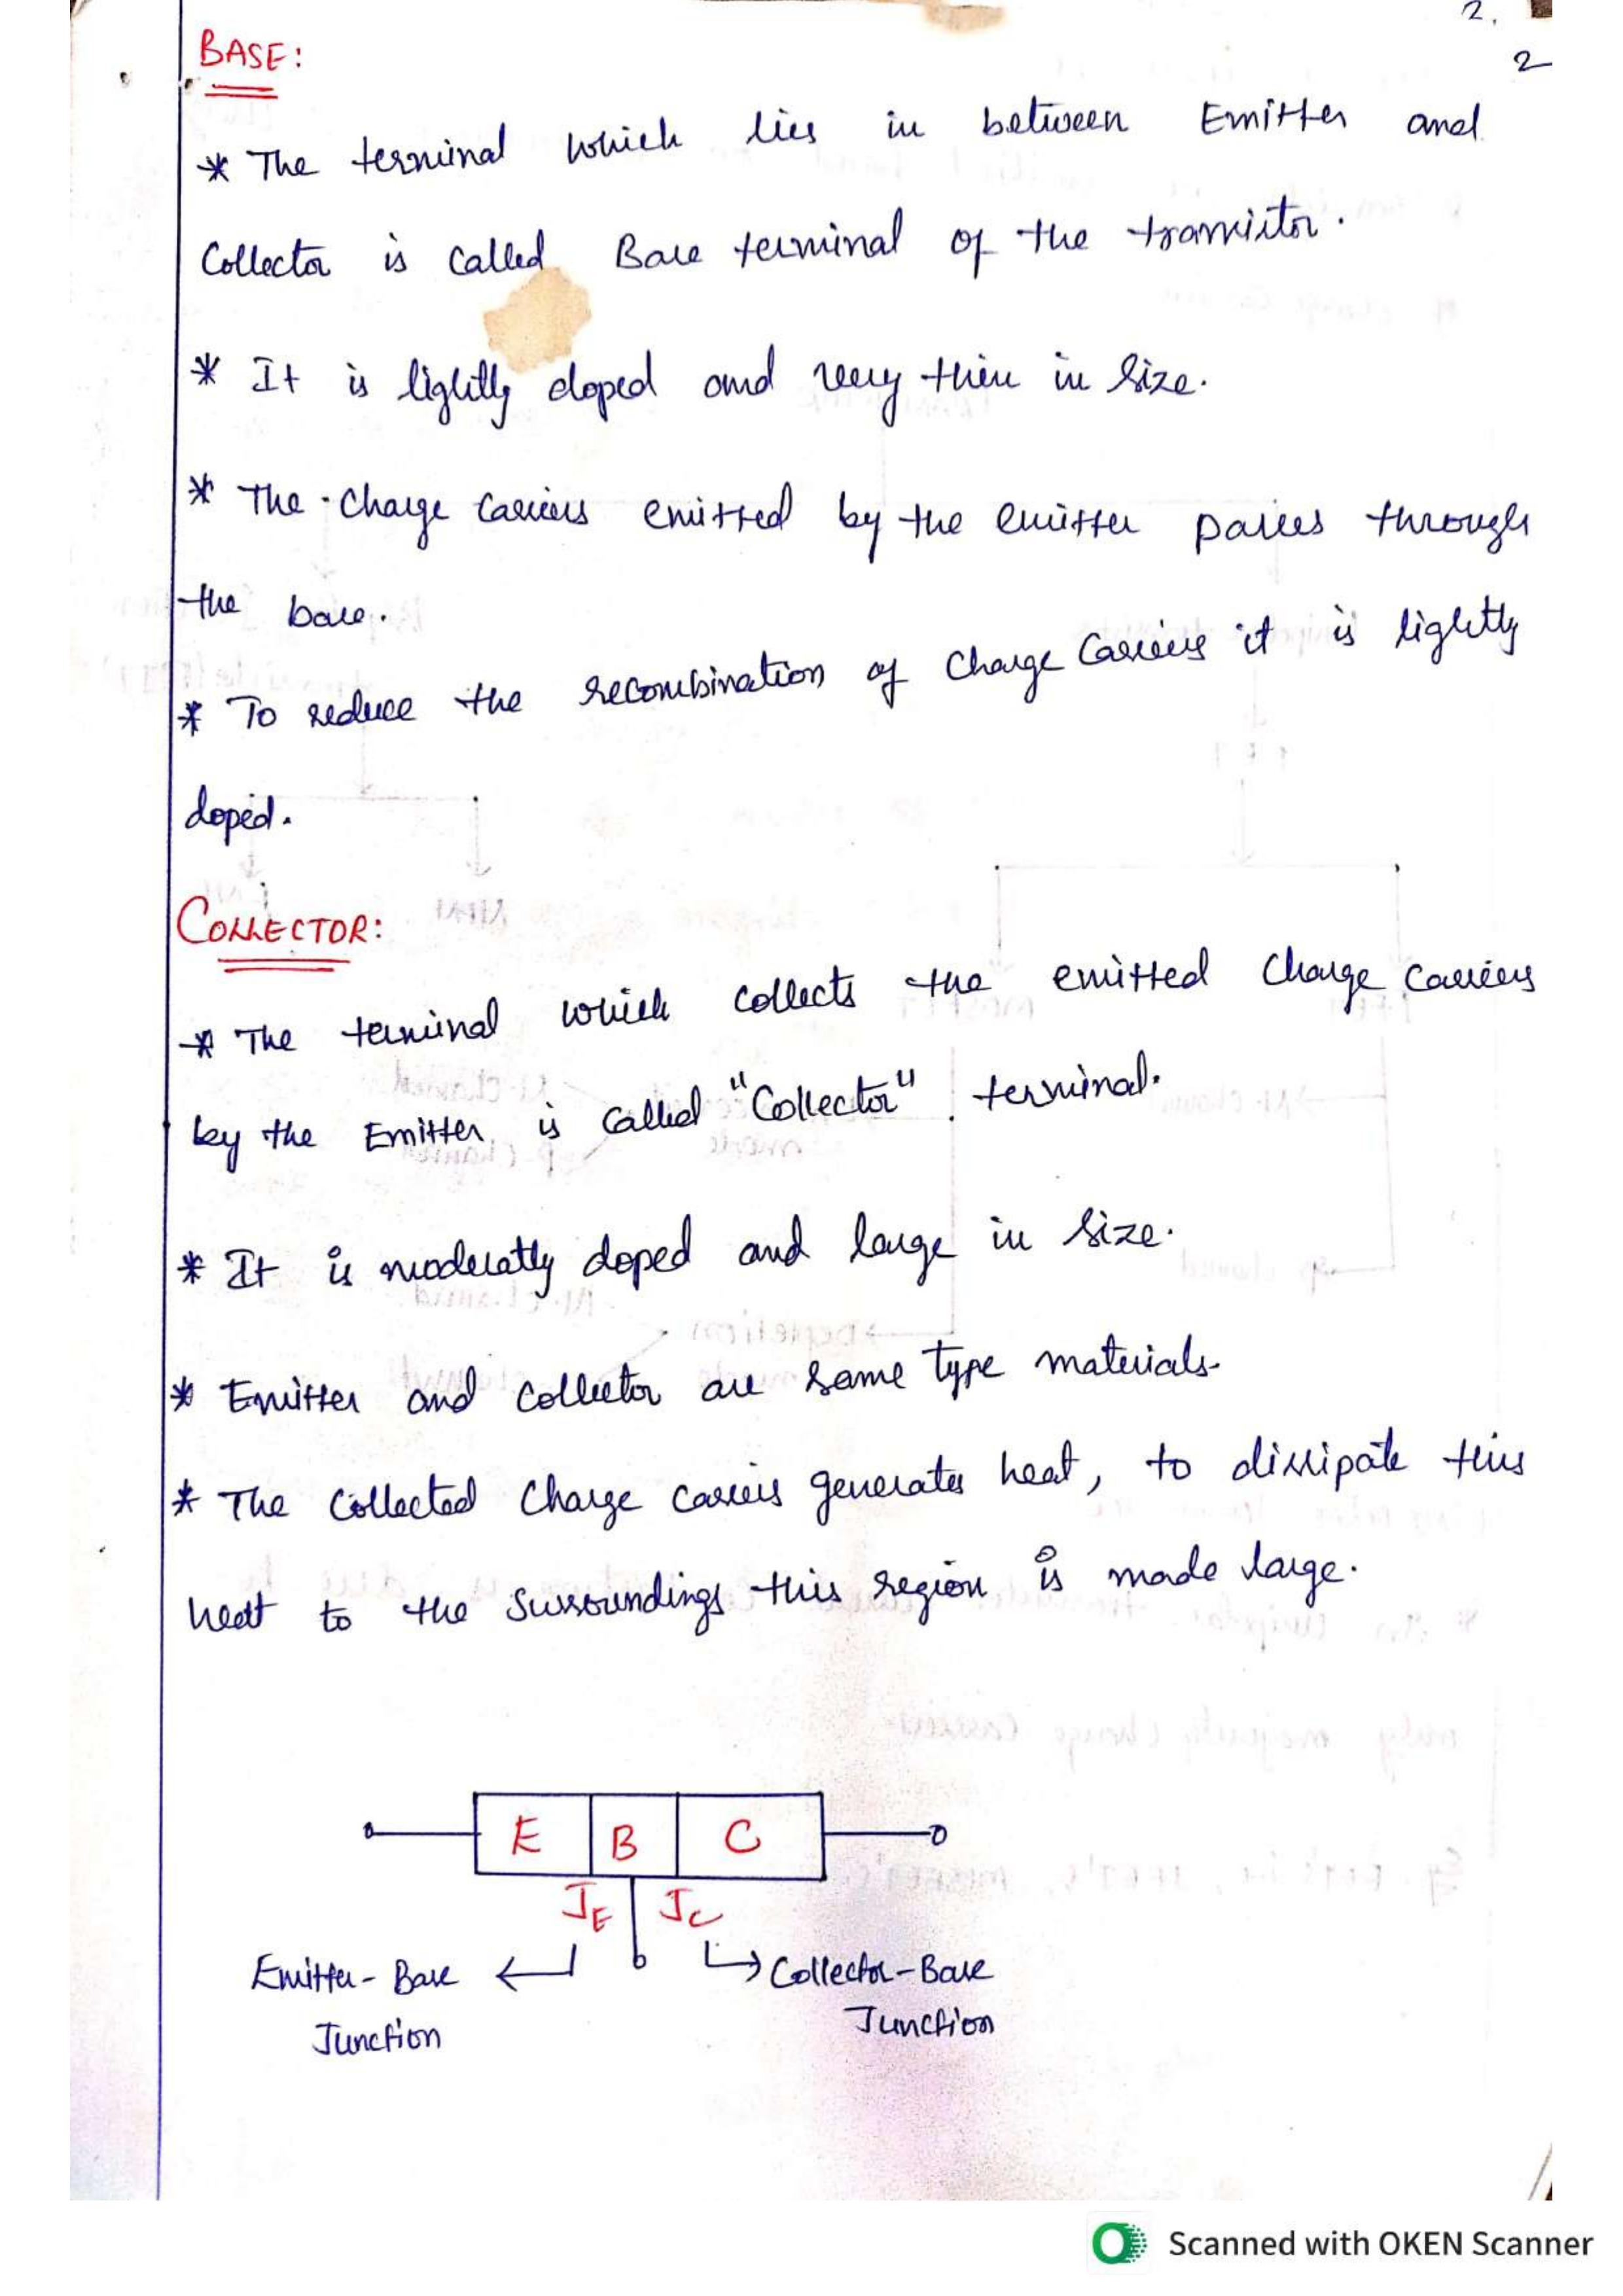 2.
2
BASE:
* The terminal which lies in between Emitter and
Collector is called Base terminal of the transistor.
* It is lightly doped and very thin in size.
* The charge carriers emitted by the emitter passes through
the base.
* To reduce the recombination of charge carriers it is lightly
doped.
COLLECTOR:
* The terminal which collects the emitted charge carriers
by the Emitter is called "Collector" terminal.
* It is moderatly doped and large in size.
* Emitter and Collector are same type materials.
* The collected charge carriers generates heat, to dissipate this
heat to the surroundings this region is made large.
E B C
JE JC
Emitter-Base
Junction
Collector-Base
Junction
Scanned with OKEN Scanner